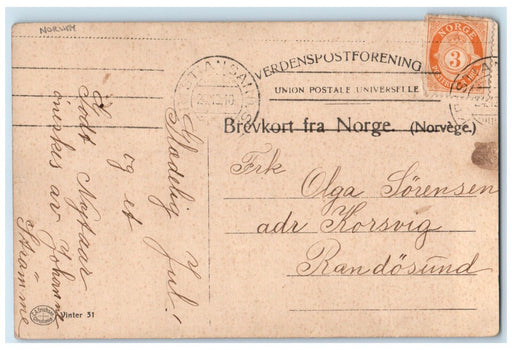 NORWAY
NORGE
3
VERDENSPOSTFORENING
UNION POSTALE UNIVERSELLE
Brevkort fra Norge. (Norvège.)
Glædelig Jul!
og et
Godt Nytaar
ønskes av Johanne
Strømme
Frk
Olga Sörensen
adr Korsvig
Randösund
Vinter 31